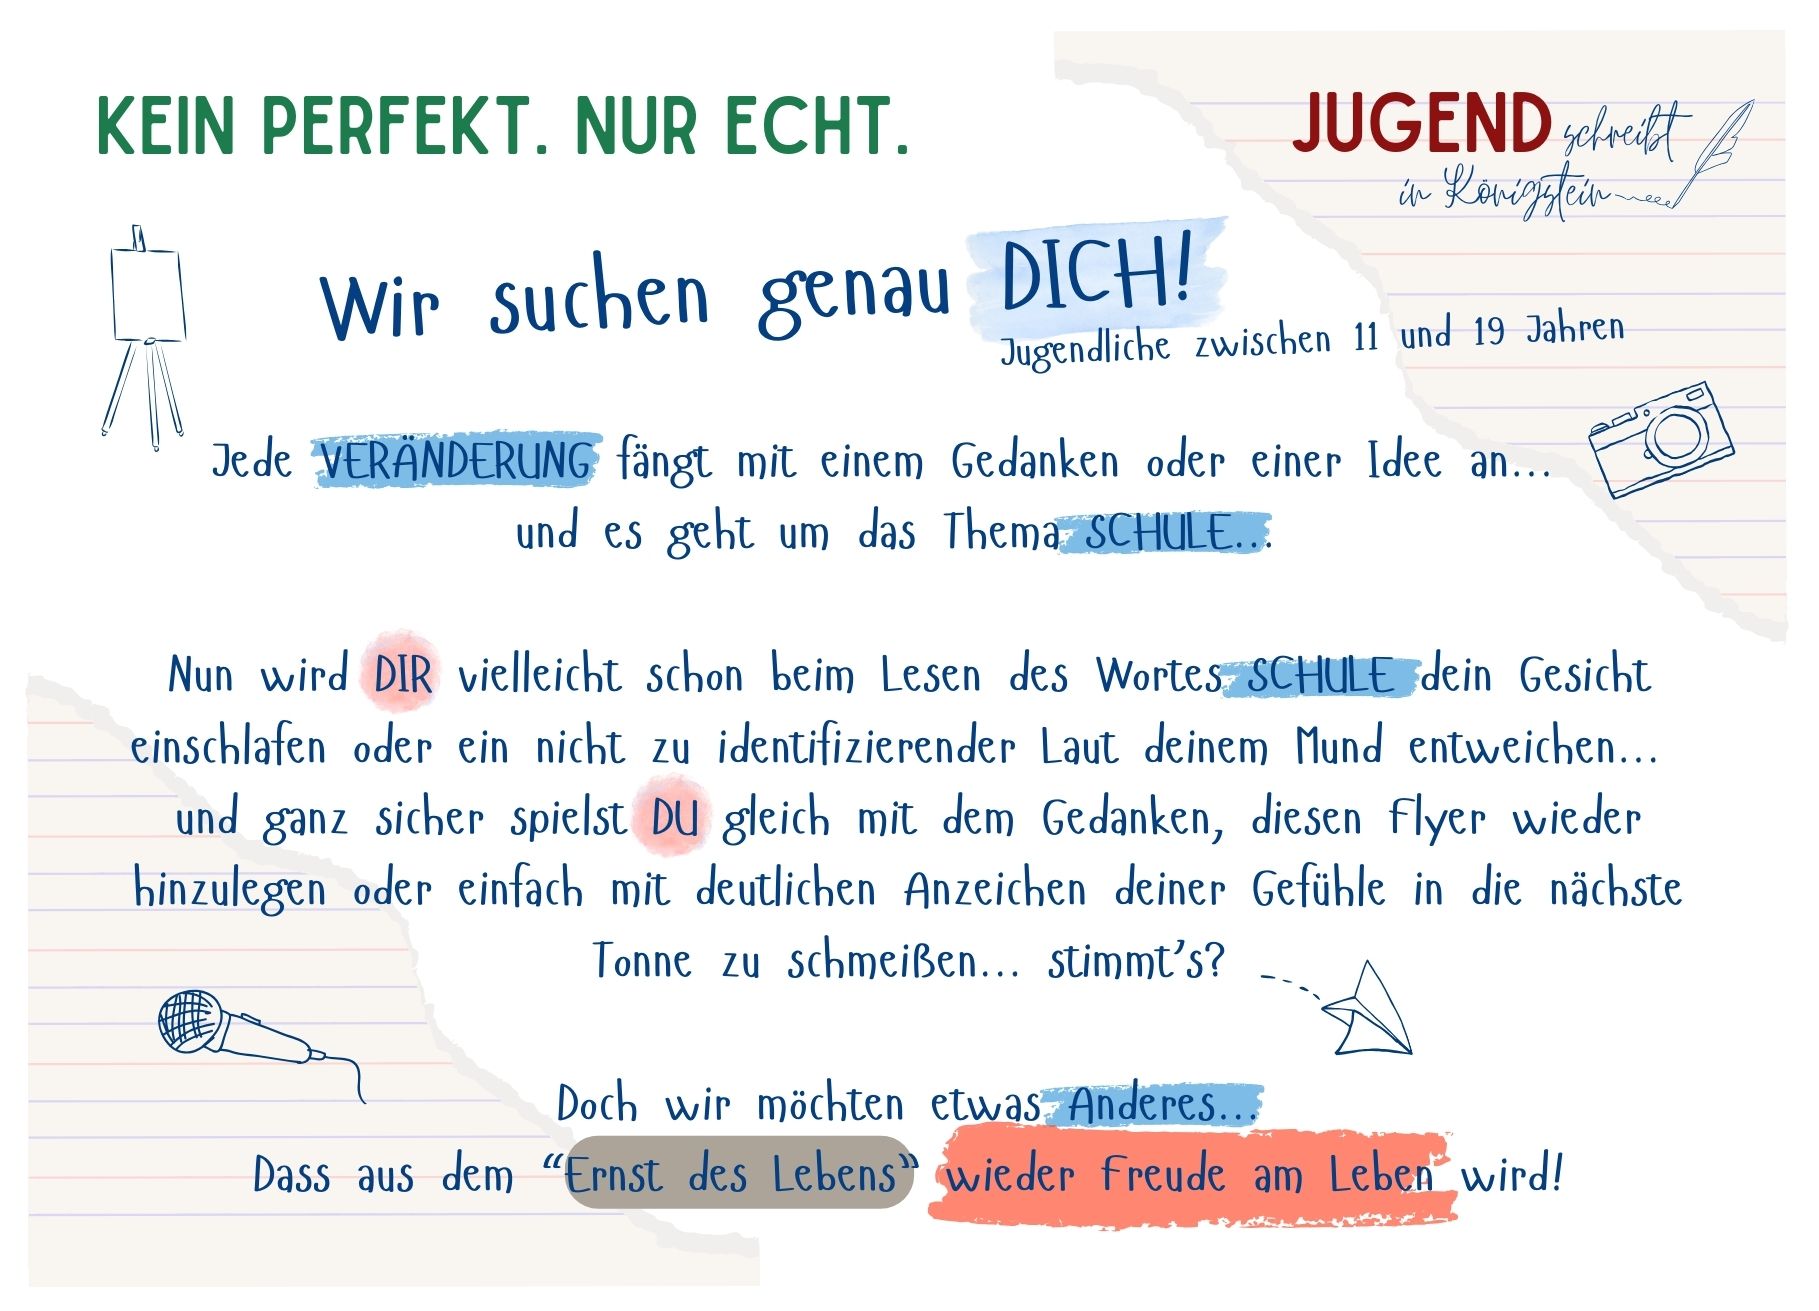 KEIN PERFEKT. NUR ECHT.
JUGEND schreibt
in Königstein
Wir suchen genau DICH!
Jugendliche zwischen 11 und 19 Jahren
Jede VERÄNDERUNG fängt mit einem Gedanken oder einer Idee an...
und es geht um das Thema SCHULE...
Nun wird DIR vielleicht schon beim Lesen des Wortes SCHULE dein Gesicht
einschlafen oder ein nicht zu identifizierender Laut deinem Mund entweichen...
und ganz sicher spielst DU gleich mit dem Gedanken, diesen Flyer wieder
hinzulegen oder einfach mit deutlichen Anzeichen deiner Gefühle in die nächste
Tonne zu schmeißen... stimmt's?
Doch wir möchten etwas Anderes...
Dass aus dem “Ernst des Lebens” wieder Freude am Leben wird!